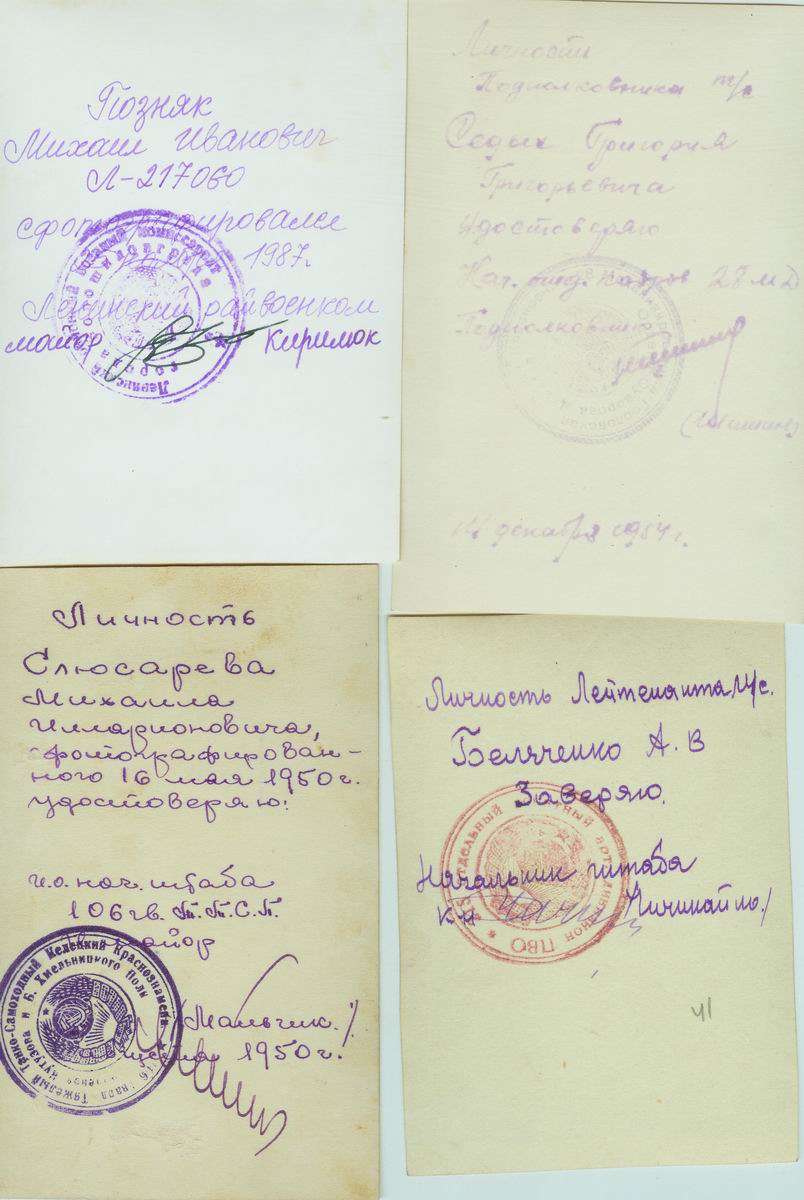 Позняк
Михаил Иванович
Л-217060
сфотографировался
1987г.
Ленинский райвоенком
майор Киримок
Ленинский районный военный комиссариат
города Ворошиловграда
Личности
Подполковника т/с
Седых Григория
Григорьевича
Удостоверяю
Нач. отд. кадров 28 МД
Подполковник
14 декабря 1954 г.
Личность
Слюсарева
Михаила
Илларионовича,
фотографирован-
ного 16 мая 1950 г.
удостоверяю:
и.о. нач. штаба
106 гв. Т.Т.С.П.
майор
/Мальчик./
1950 г.
Тяжелый Танко-Самоходный Келецкий Краснознаменный
Кутузова и Б. Хмельницкого Полк
Личность Лейтенанта м/с.
Беляченко А. В
Заверяю.
Начальник штаба
к-н Чичинайло./
отдельный
ПВО
41